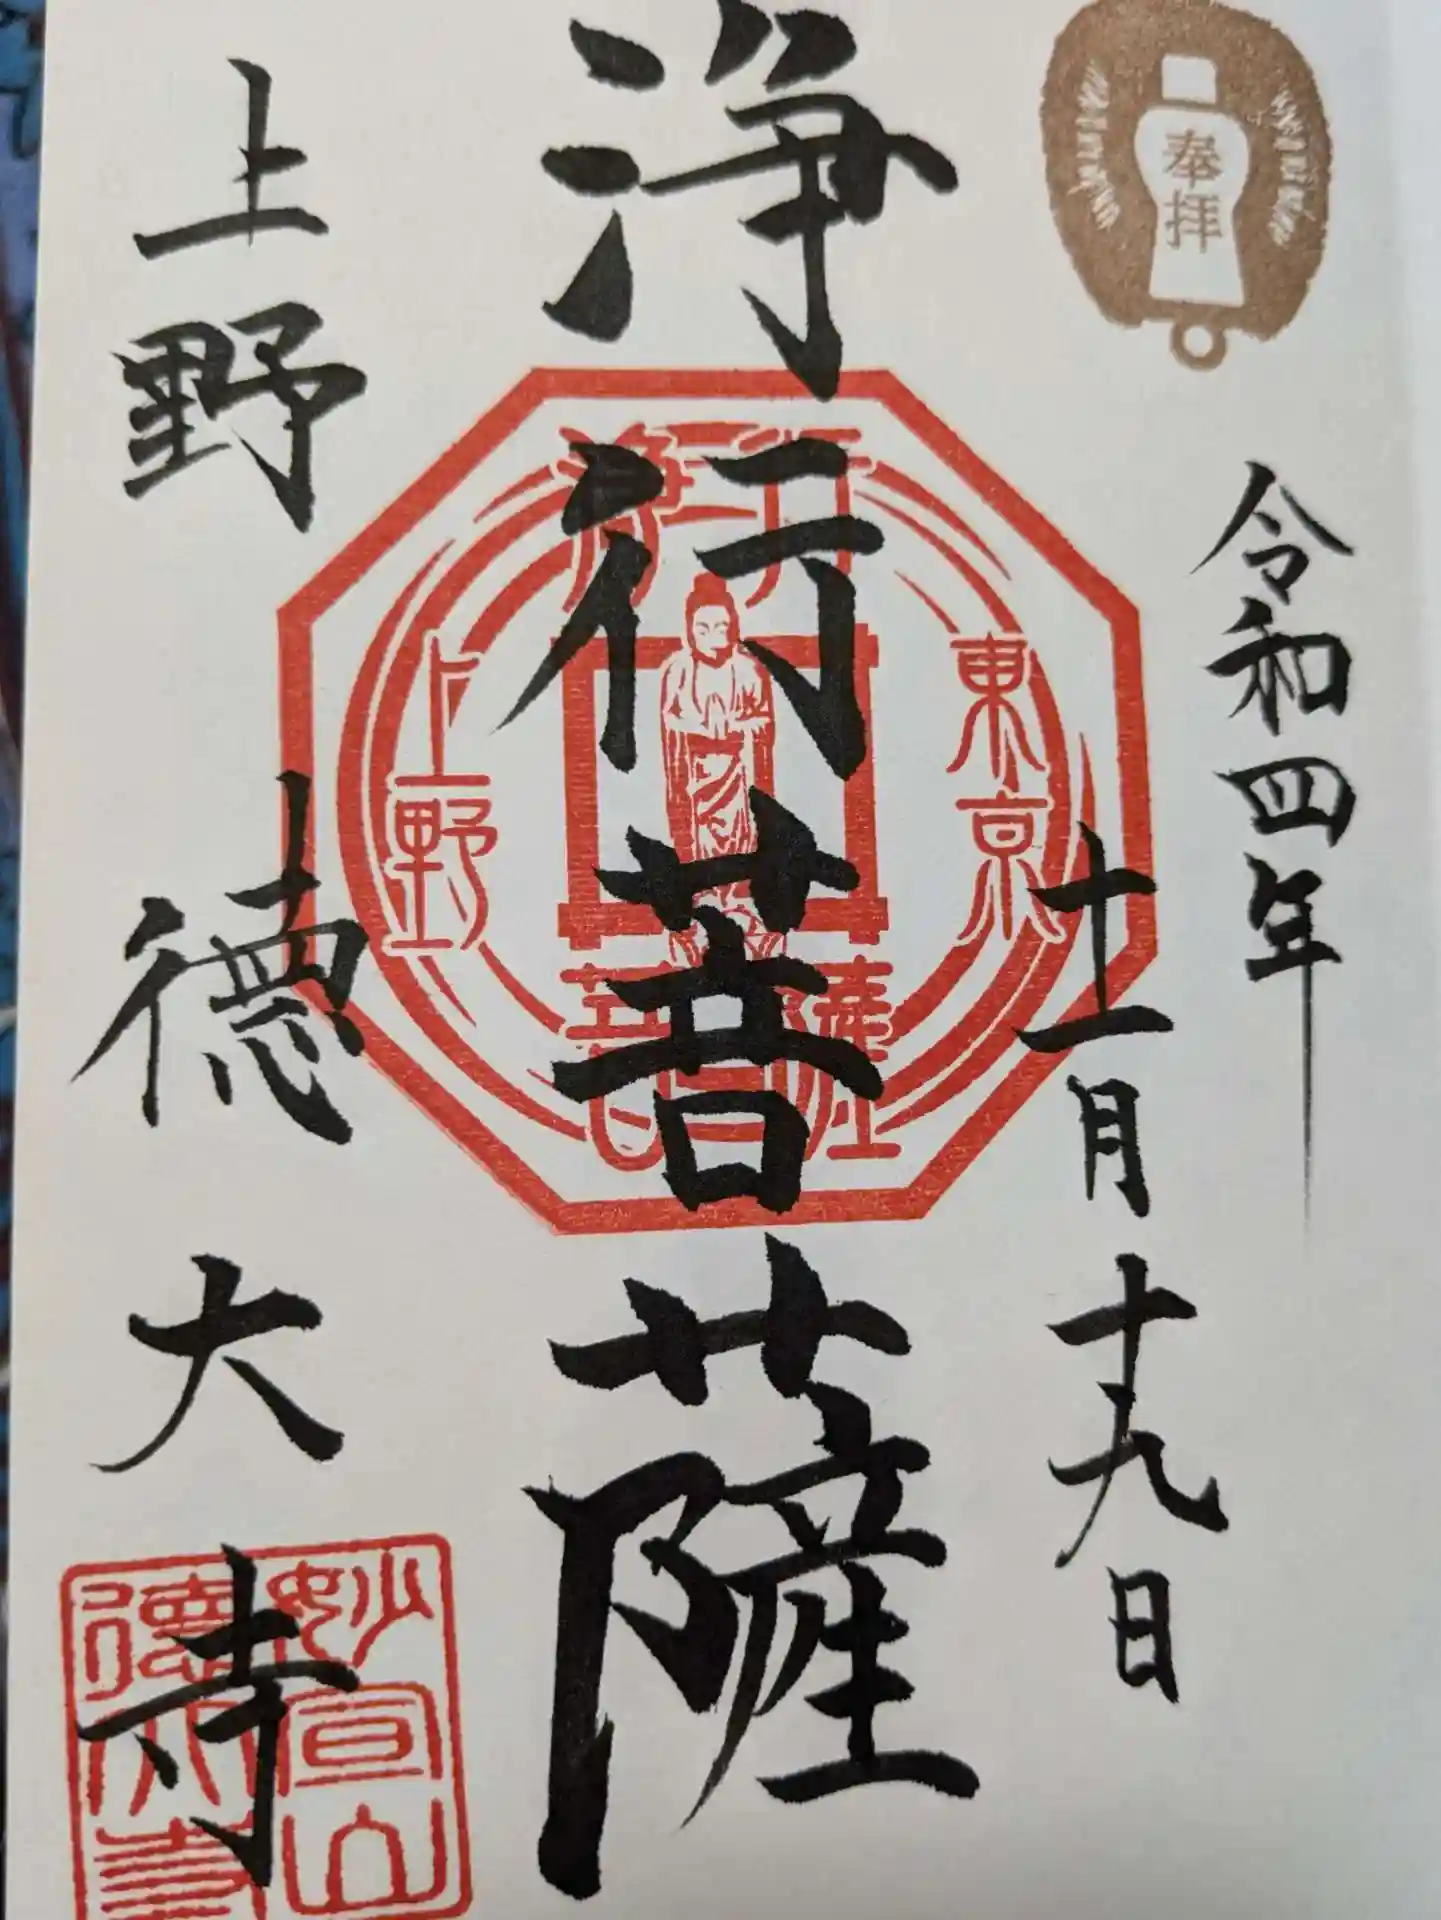 奉拝
令和四年
十一月十九日
浄行菩薩
上野
徳大寺
東京
上野
浄行
菩薩
妙宣山
徳大寺